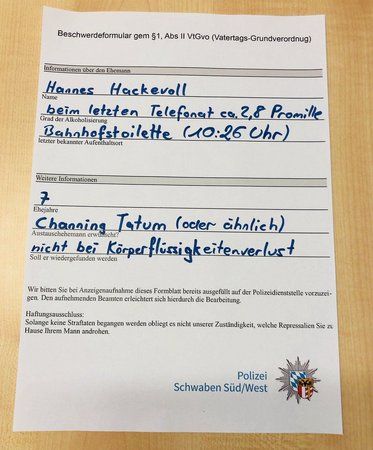 Beschwerdeformular gem §1, Abs II VtGvo (Vatertags-Grundverordnug)
Informationen über den Ehemann
Hannes Hackevoll
Name
beim letzten Telefonat ca. 2,8 Promille
Grad der Alkoholisierung
Bahnhofstoilette (10:26 Uhr)
letzter bekannter Aufenthaltsort
Weitere Informationen
7
Ehejahre
Channing Tatum (oder ähnlich)
Austauschehemann erwünscht?
nicht bei Körperflüssigkeitenverlust
Soll er wiedergefunden werden
Wir bitten Sie bei Anzeigenaufnahme dieses Formblatt bereits ausgefüllt auf der Polizeidienststelle vorzuzei-
gen. Den aufnehmenden Beamten erleichtert sich hierdurch die Bearbeitung.
Haftungsausschluss:
Solange keine Straftaten begangen werden obliegt es nicht unserer Zuständigkeit, welche Repressalien Sie zu
Hause Ihrem Mann androhen.
Polizei
Schwaben Süd/West